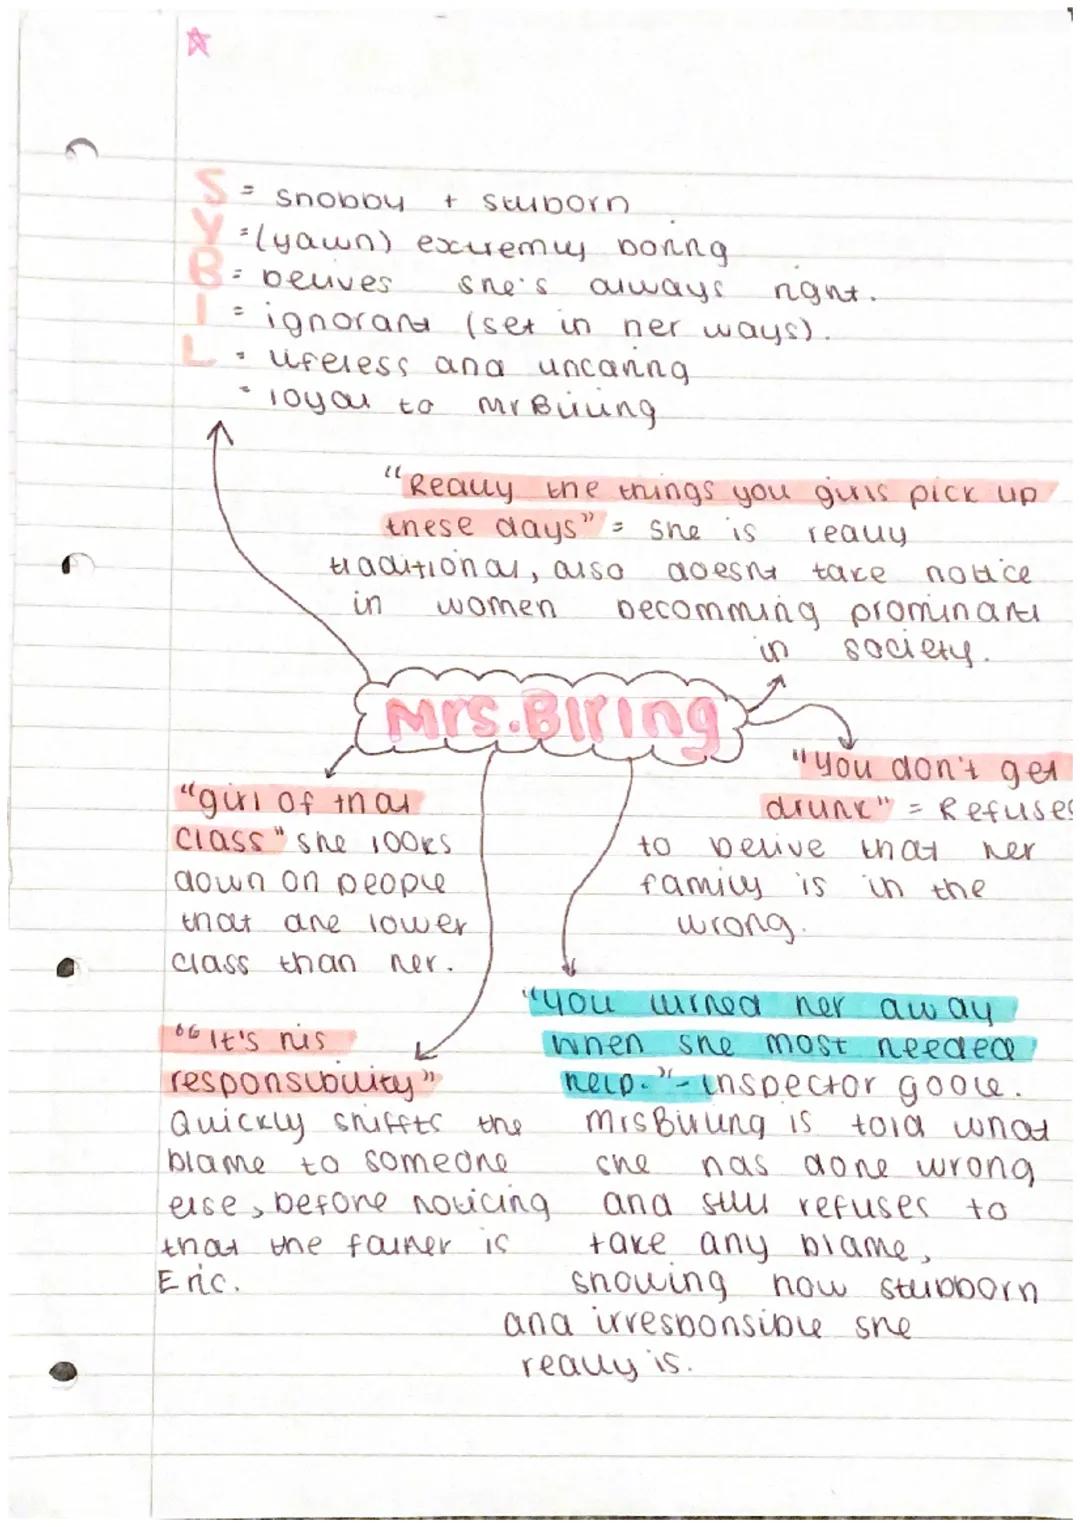 S = snobby + stuborn
Y = (yawn) extremly boring
B = belives she's always right.
I = ignorant (set in her ways).
L = lifeless and uncaring
= loyal to Mr Birling
"Really the things you girls pick up
these days" = she is really
traditional, also doesnt take notice
in women becomming prominant
in society.
Mrs.Birling
"girl of that
class" she looks
down on people
that are lower
class than her.
"You don't get
drunk" = Refuses
to belive that her
family is in the
wrong.
"It's his
responsibility"
Quickly shiffts the
blame to someone
else, before noticing
that the father is
Eric.
"You turned her away
when she most needed
help." - Inspector goole.
Mrs Birling is told what
she has done wrong
and still refuses to
take any blame,
showing how stubborn
and irresponsible she
really is.